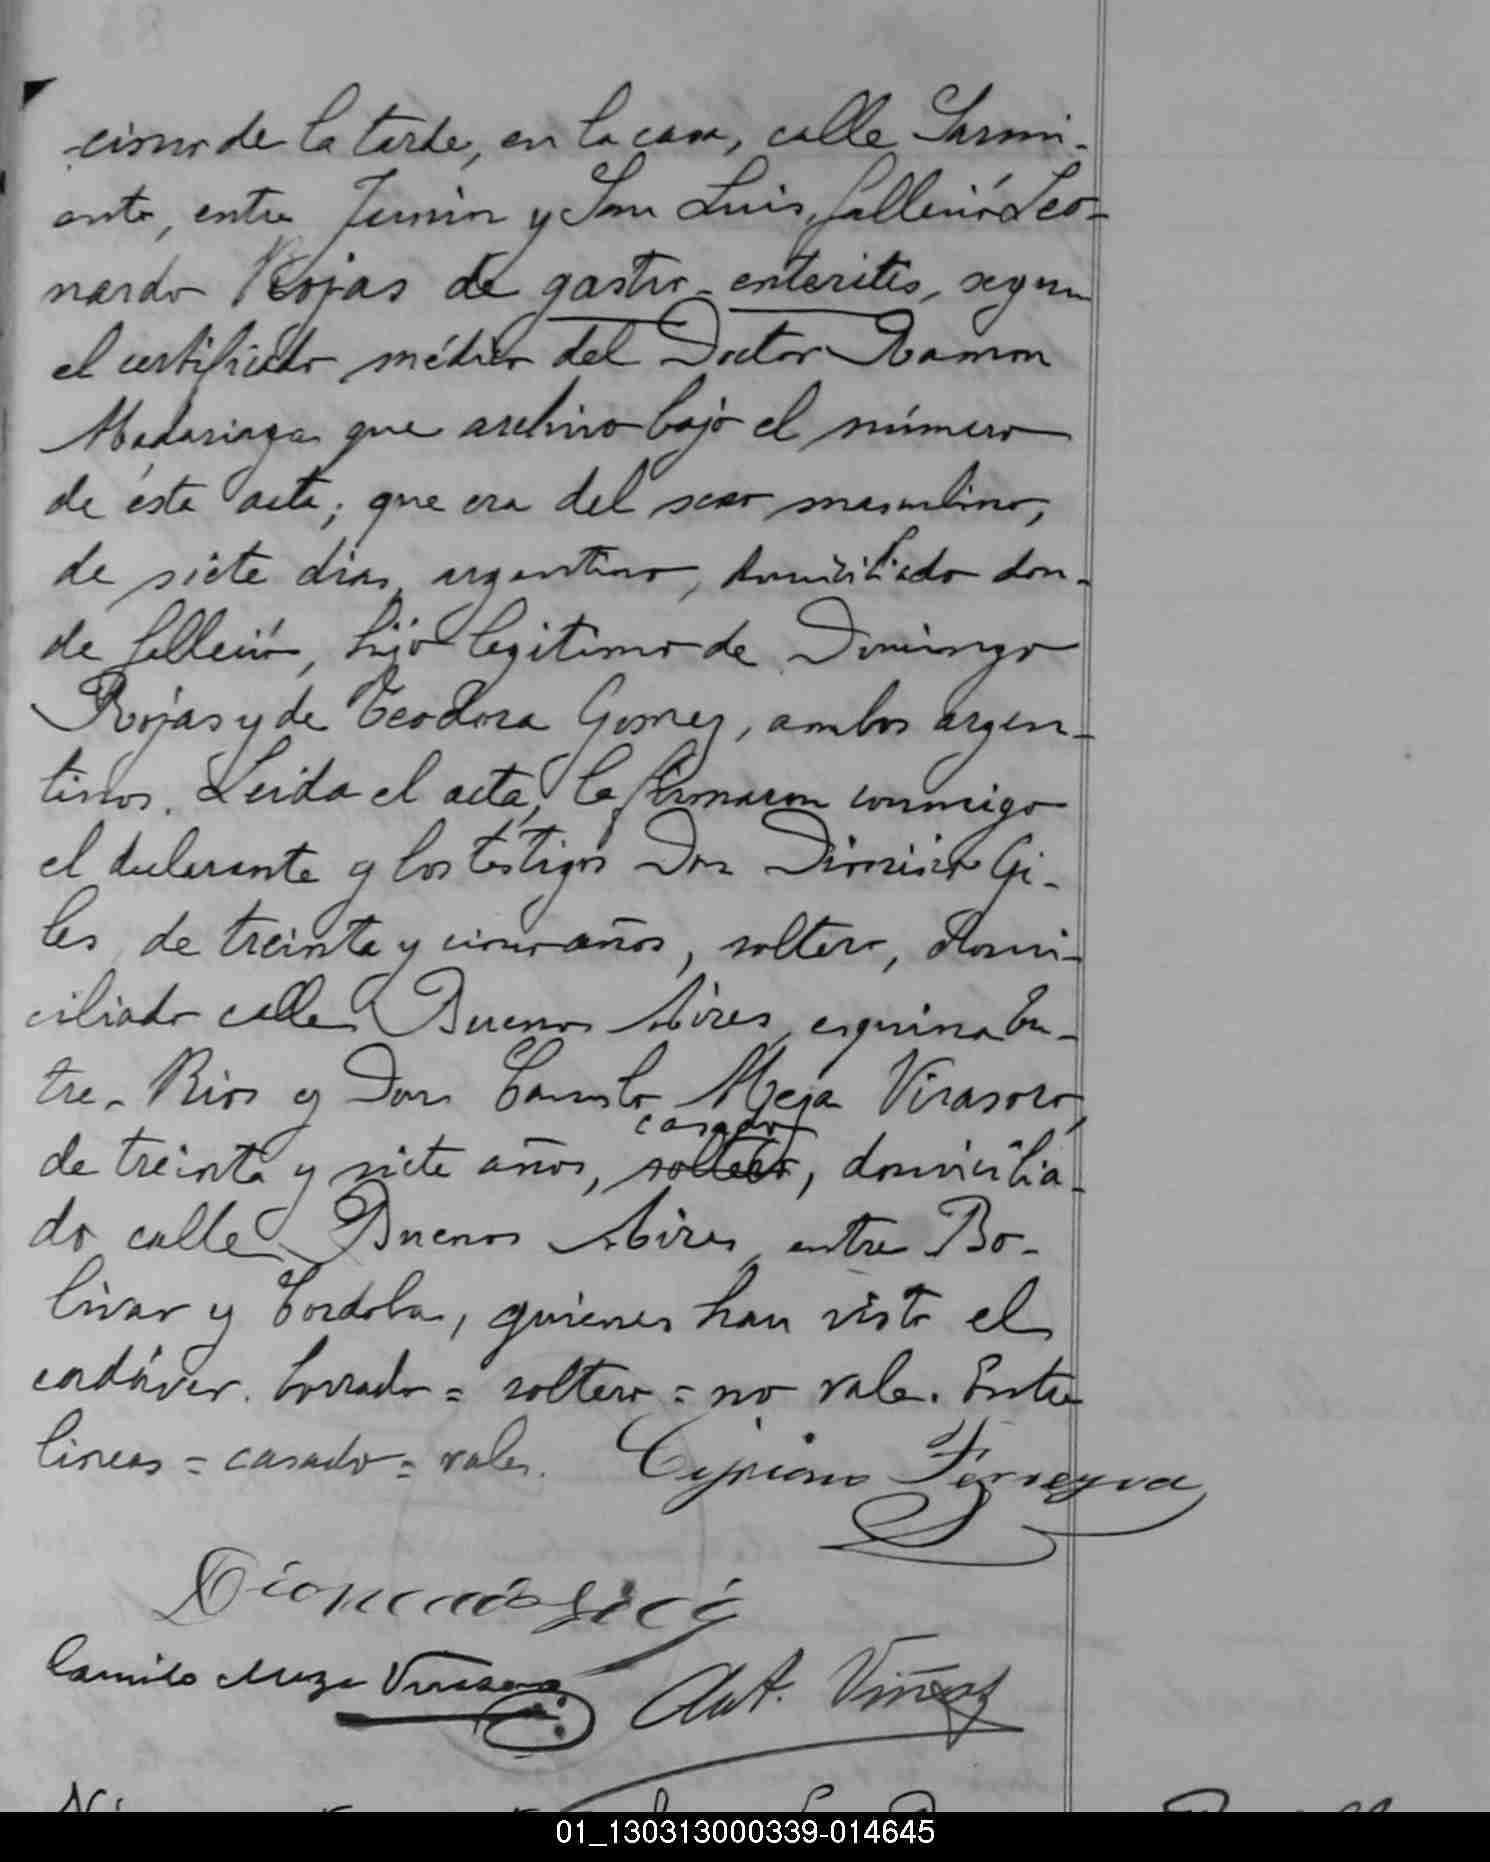 cinco de la tarde, en la casa, calle Sarmi-
ento, entre Junin y San Luis, falleció Leo-
nardo Rojas de gastro-enteritis, segun
el certificado médico del Doctor Ramon
Madariaga que archivo bajo el número
de ésta acta; que era del sexo masculino,
de siete dias, argentino, domiciliado don-
de falleció, hijo legitimo de Domingo
Rojas y de Teodora Gomez, ambos argen-
tinos. Leida el acta, la firmaron conmigo
el declarante y los testigos Don Dionisio Gi-
les, de treinta y cinco años, soltero, domi-
ciliado calle Buenos Aires, esquina En-
tre-Rios y Don Camilo Meza Virasoro,
casado
de treinta y siete años, soltero, domicilia-
do calle Buenos Aires, entre Bo-
livar y Cordoba, quienes han visto el
cadáver. Borrado = soltero = no vale. Entre
lineas = casado = vale. Cipriano Ferreyra
Camilo Meza Virasoro Ant. Viñas
01_130313000339-014645